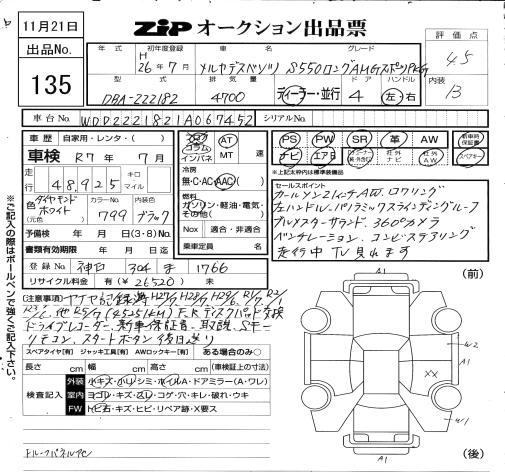 11月21日
ZIP オークション出品票
出品No.
135
評価点
4.5
内装
B
年式 初年度登録 車名 グレード
H 26年7月 メルセデスベンツ S550ロングAMGスポーツPKG
型式 排気量 ドア ハンドル
DBA-222182 4700 ディーラー・並行 4 左・右
車台No. WDD2221821A067452 シリアルNo.
車歴 自家用・レンタ・( )
車検 R7年7月
走行 48,925 キロ マイル
色 ダイヤモンドホワイト (元色) カラーNo. 799 内装色 ブラック
予備検 年 月 日 (3・8)No.
書類有効期限 年 月 日
登録No. 神戸 304 ま 1766
リサイクル料金 有(¥ 26520 ) 無
フロア コラム インパネ AT MT 速
冷房
無・C・AC(AAC)( )
燃料
ガソリン・軽油・電気・その他( )
Nox 適合・非適合
乗車定員 名
PS PW SR 革 AW 新車時保証書
ナビ エアB 社外ナビ 社外AW スペアキー
※上記太枠内は標準装備品
セールスポイント
左ハンドル、パノラミックスライディングルーフ
ブルメスターサラウンド、360°カメラ
ベンチレーション、コンビステアリング
走行中TV見れます
(注意事項)
(45251KM) F、Rディスクパッド交換
ドライブレコーダー、新車保証書、取説、Sキー
リモコン、スタートボタン後日送り
スペアタイヤ[有] ジャッキ工具[有] AWロックキー[有] ある場合のみ○
長さ cm 幅 cm 高さ cm (車検証上の寸法)
検査記入
外装 小キズ・凹・シミ・ホイルA・ドアミラー(A・ワレ)
室内 ヨゴレ・キズ・スレ・コゲ・穴・キレ・破れ・ウキ
FW トビ石・キズ・ヒビ・リペア跡・X要ス
※ご記入の際はボールペンで強くご記入下さい。
(前)
A1
W2
A1
XX
W1
A1
(後)